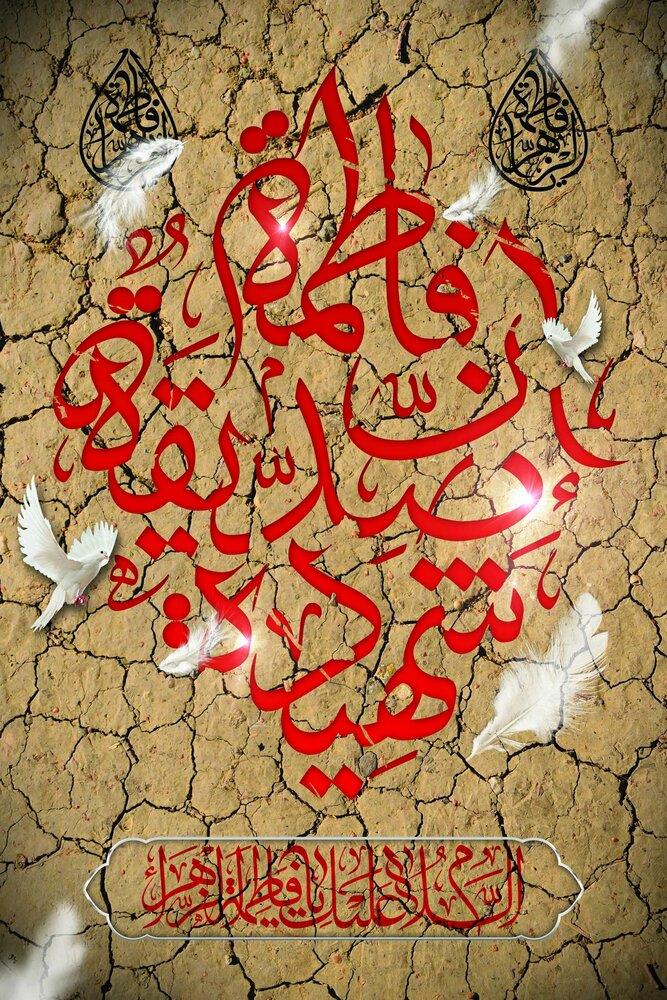 فاطمة الزهراء
فاطمة الزهراء
إنّ فاطمة
صدّيقة
شهيدة
السلام عليك يا فاطمة الزهراء